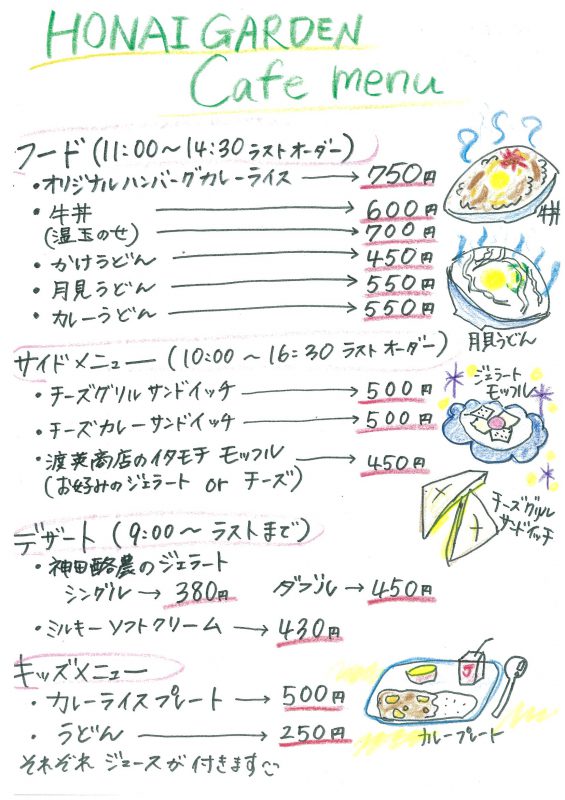 HONAI GARDEN
Cafe menu
フード (11:00～14:30 ラストオーダー)
・オリジナルハンバーグカレーライス → 750円
・牛丼 → 600円
(温玉のせ) → 700円
・かけうどん → 450円
・月見うどん → 550円
・カレーうどん → 550円
牛丼
月見うどん
サイドメニュー (10:00～16:30 ラストオーダー)
・チーズグリルサンドイッチ → 500円
・チーズカレーサンドイッチ → 500円
・渡莱商店のイタモチ モッフル → 450円
(お好みのジェラート or チーズ)
ジェラート
モッフル
チーズグリル
サンドイッチ
デザート (9:00～ ラストまで)
・神田酪農のジェラート
シングル → 380円 ダブル → 450円
・ミルキーソフトクリーム → 430円
キッズメニュー
・カレーライスプレート → 500円
・うどん → 250円
それぞれ ジュースが付きます
J
カレープレート